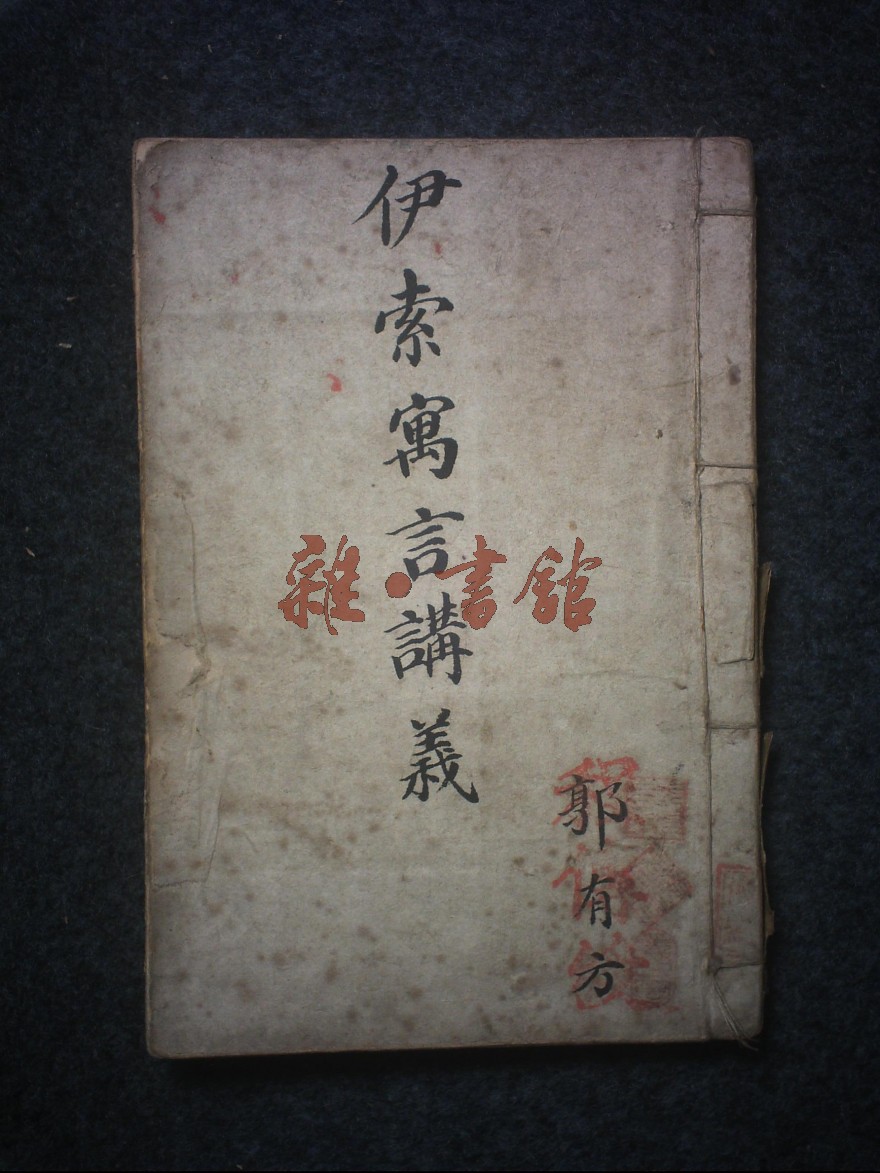 伊索寓言講義
雜·書館
郭有方